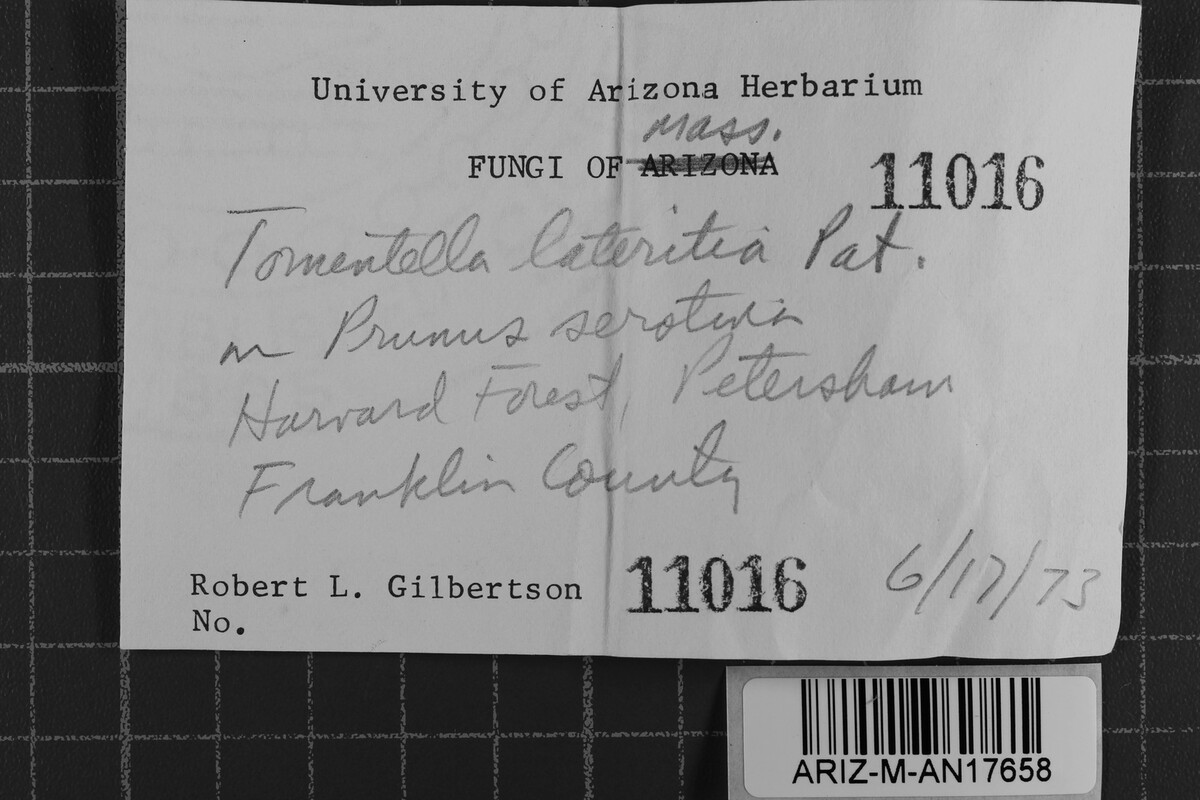 University of Arizona Herbarium
Mass.
FUNGI OF ARIZONA
11016
Tomentella lateritia Pat.
on Prunus serotina
Harvard Forest, Petersham
Franklin County
Robert L. Gilbertson
No.
11016
6/17/73
ARIZ-M-AN17658